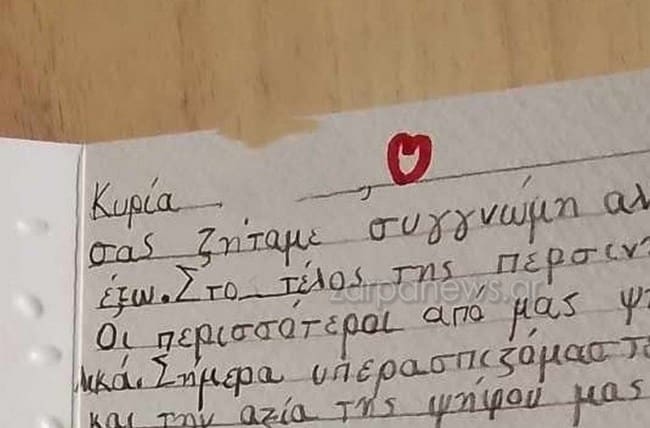 Κυρία ,
σας ζητάμε συγγνώμη αλ
έξω. Στο τέλος της περσιν
zarpanews.gr
Οι περισσότεροι από μας ψ
ικά. Σήμερα υπερασπιζόμαστ
και την αξία της ψήφου μας